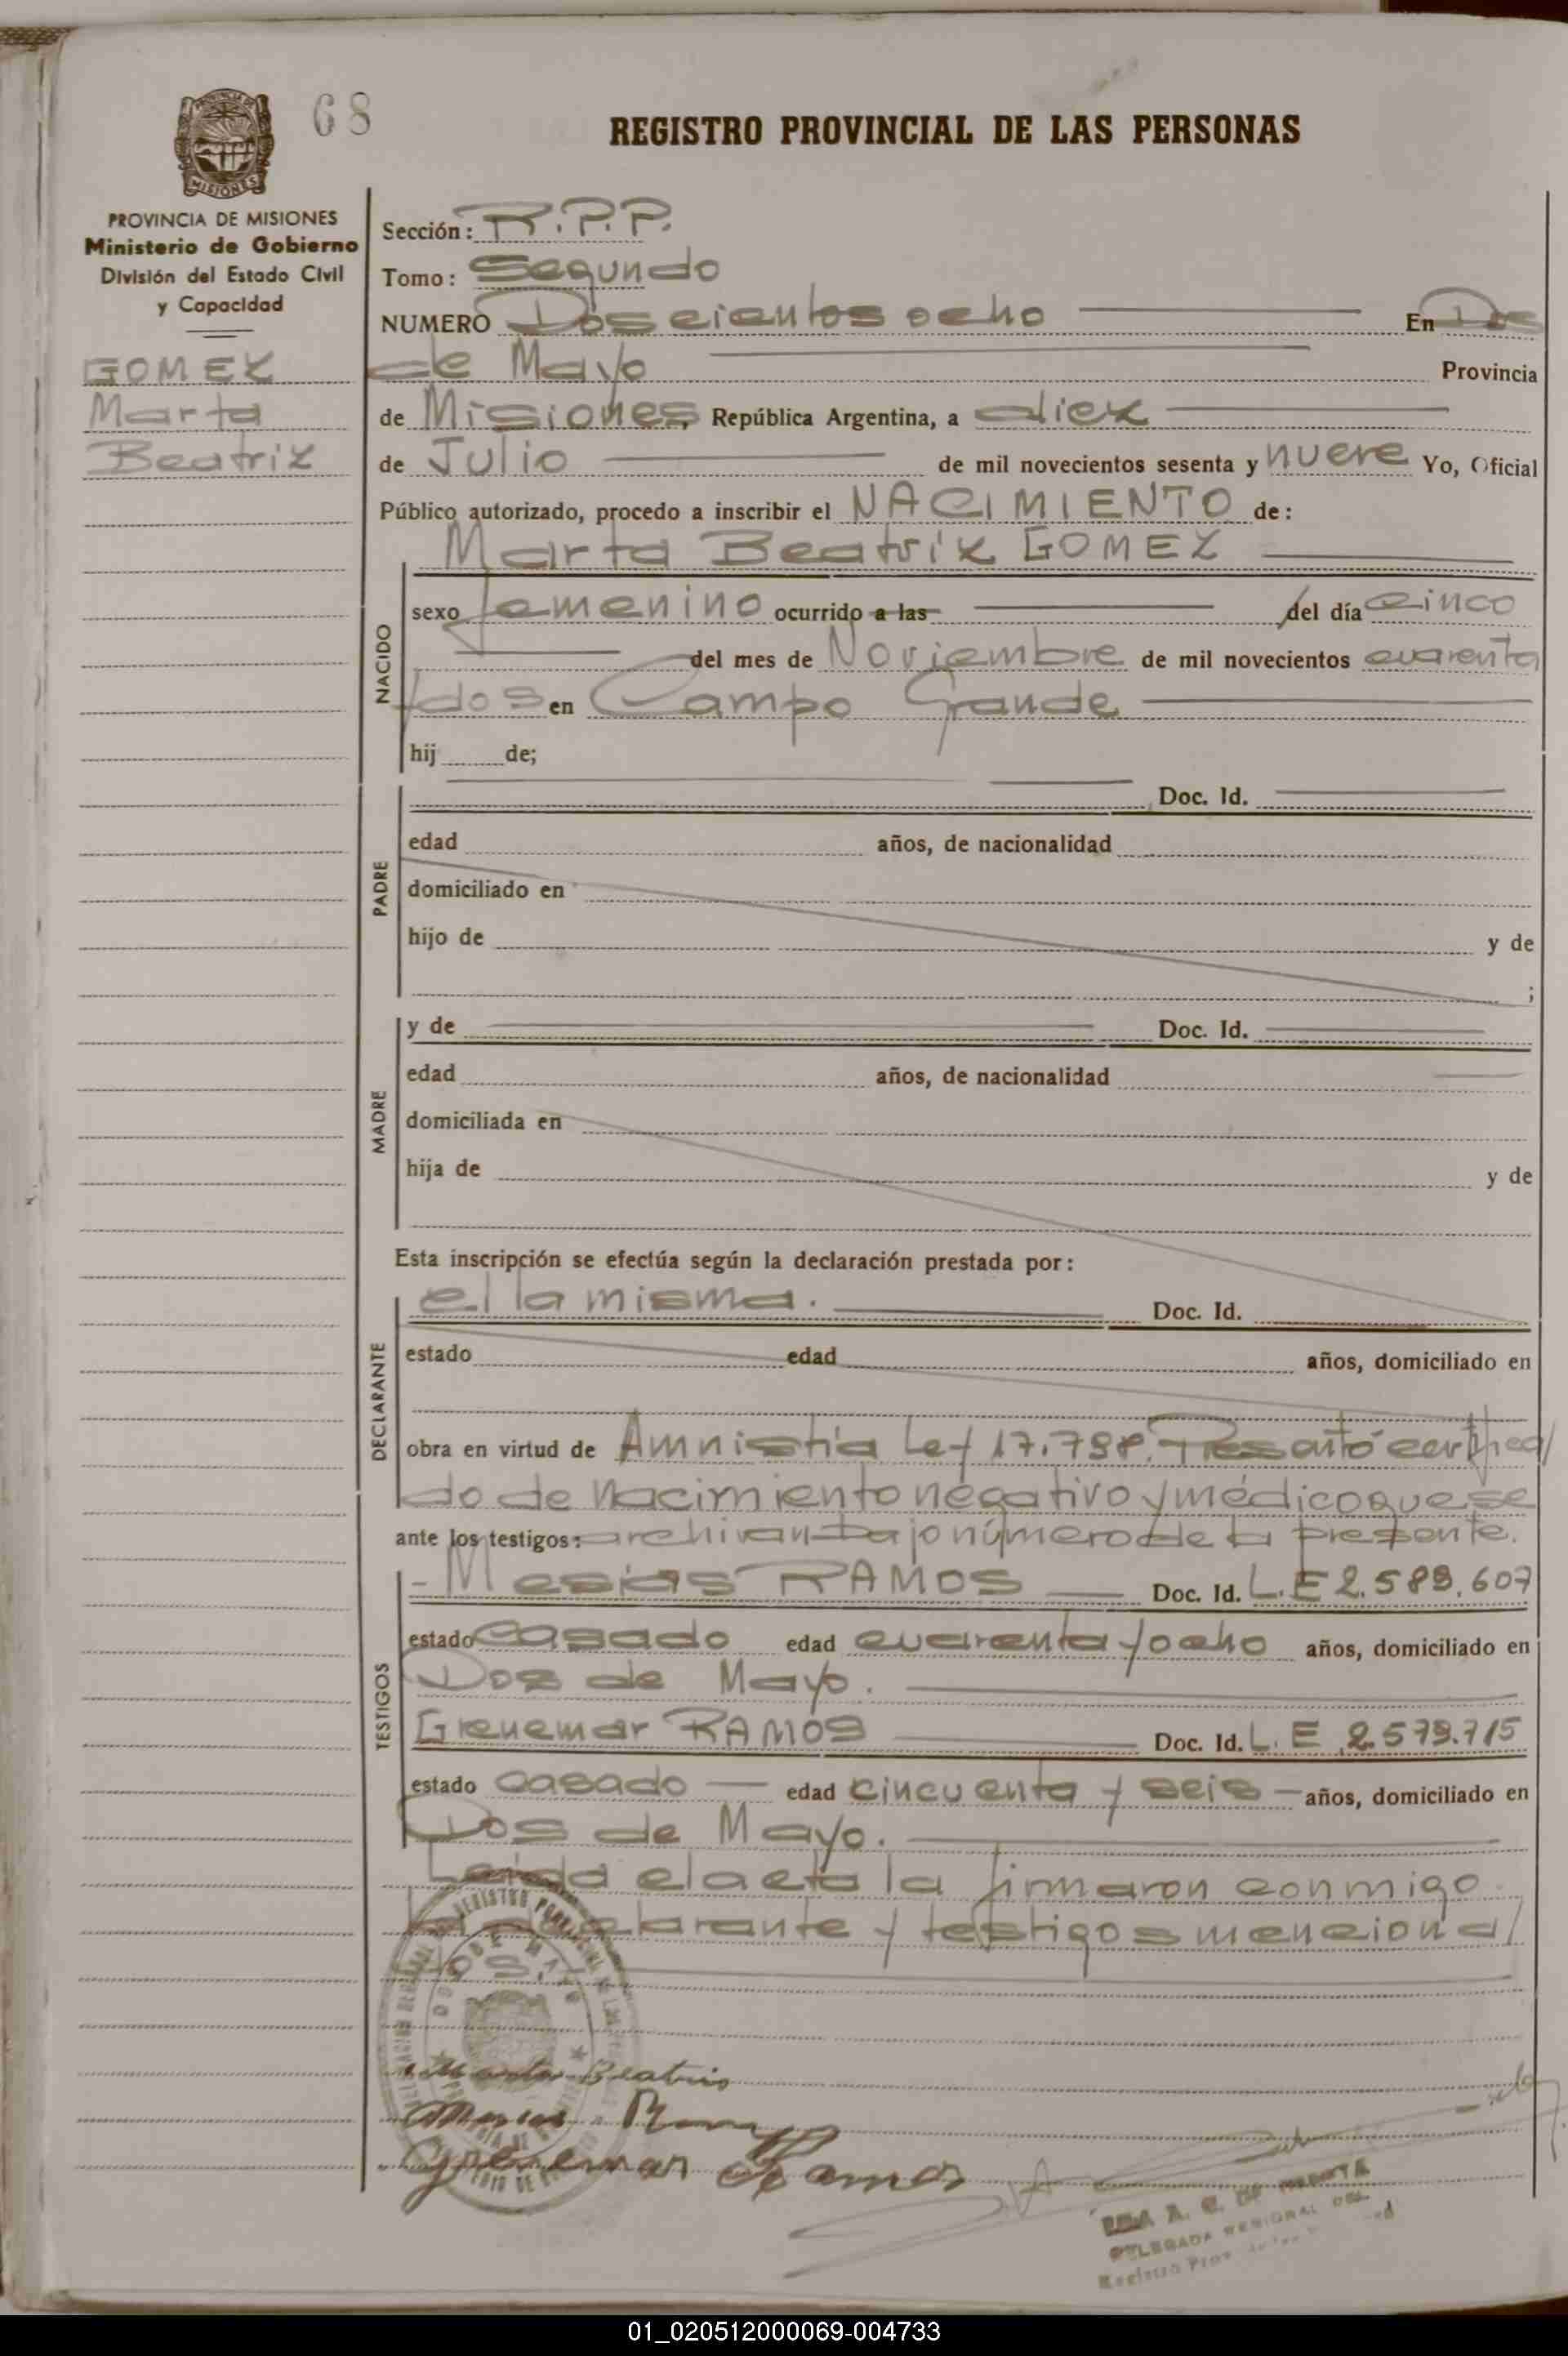 68
REGISTRO PROVINCIAL DE LAS PERSONAS
PROVINCIA DE MISIONES
Ministerio de Gobierno
División del Estado Civil
y Capacidad
GOMEZ
Marta
Beatriz
Sección: R.P.P.
Tomo: Segundo
NUMERO Doscientos ocho En Dos
de Mayo Provincia
de Misiones, República Argentina, a diez
de Julio de mil novecientos sesenta y nueve Yo, Oficial
Público autorizado, procedo a inscribir el NACIMIENTO de:
Marta Beatriz GOMEZ
NACIDO
sexo femenino ocurrido a las del día cinco
del mes de Noviembre de mil novecientos cuarenta
/dos en Campo Grande
hij de;
PADRE
Doc. Id.
edad años, de nacionalidad
domiciliado en
hijo de y de
;
MADRE
y de Doc. Id.
edad años, de nacionalidad
domiciliada en
hija de y de
Esta inscripción se efectúa según la declaración prestada por:
DECLARANTE
ella misma. Doc. Id.
estado edad años, domiciliado en
obra en virtud de Amnistía Ley 17.798. Presentó certifica/
do de nacimiento negativo y médico que se
ante los testigos: archivan bajo número de la presente.
TESTIGOS
- Mesias RAMOS Doc. Id. L.E 2.589.607
estado casado edad cuarenta y ocho años, domiciliado en
Dos de Mayo.
Grenemar RAMOS Doc. Id. L.E 2.579.715
estado casado edad cincuenta y seis años, domiciliado en
Dos de Mayo.
Leida el acta la firmaron conmigo
la declarante y testigos menciona/
dos.
Marta Beatris
Mesias
Ramos
DELEGADA REGIONAL DEL
01_020512000069-004733